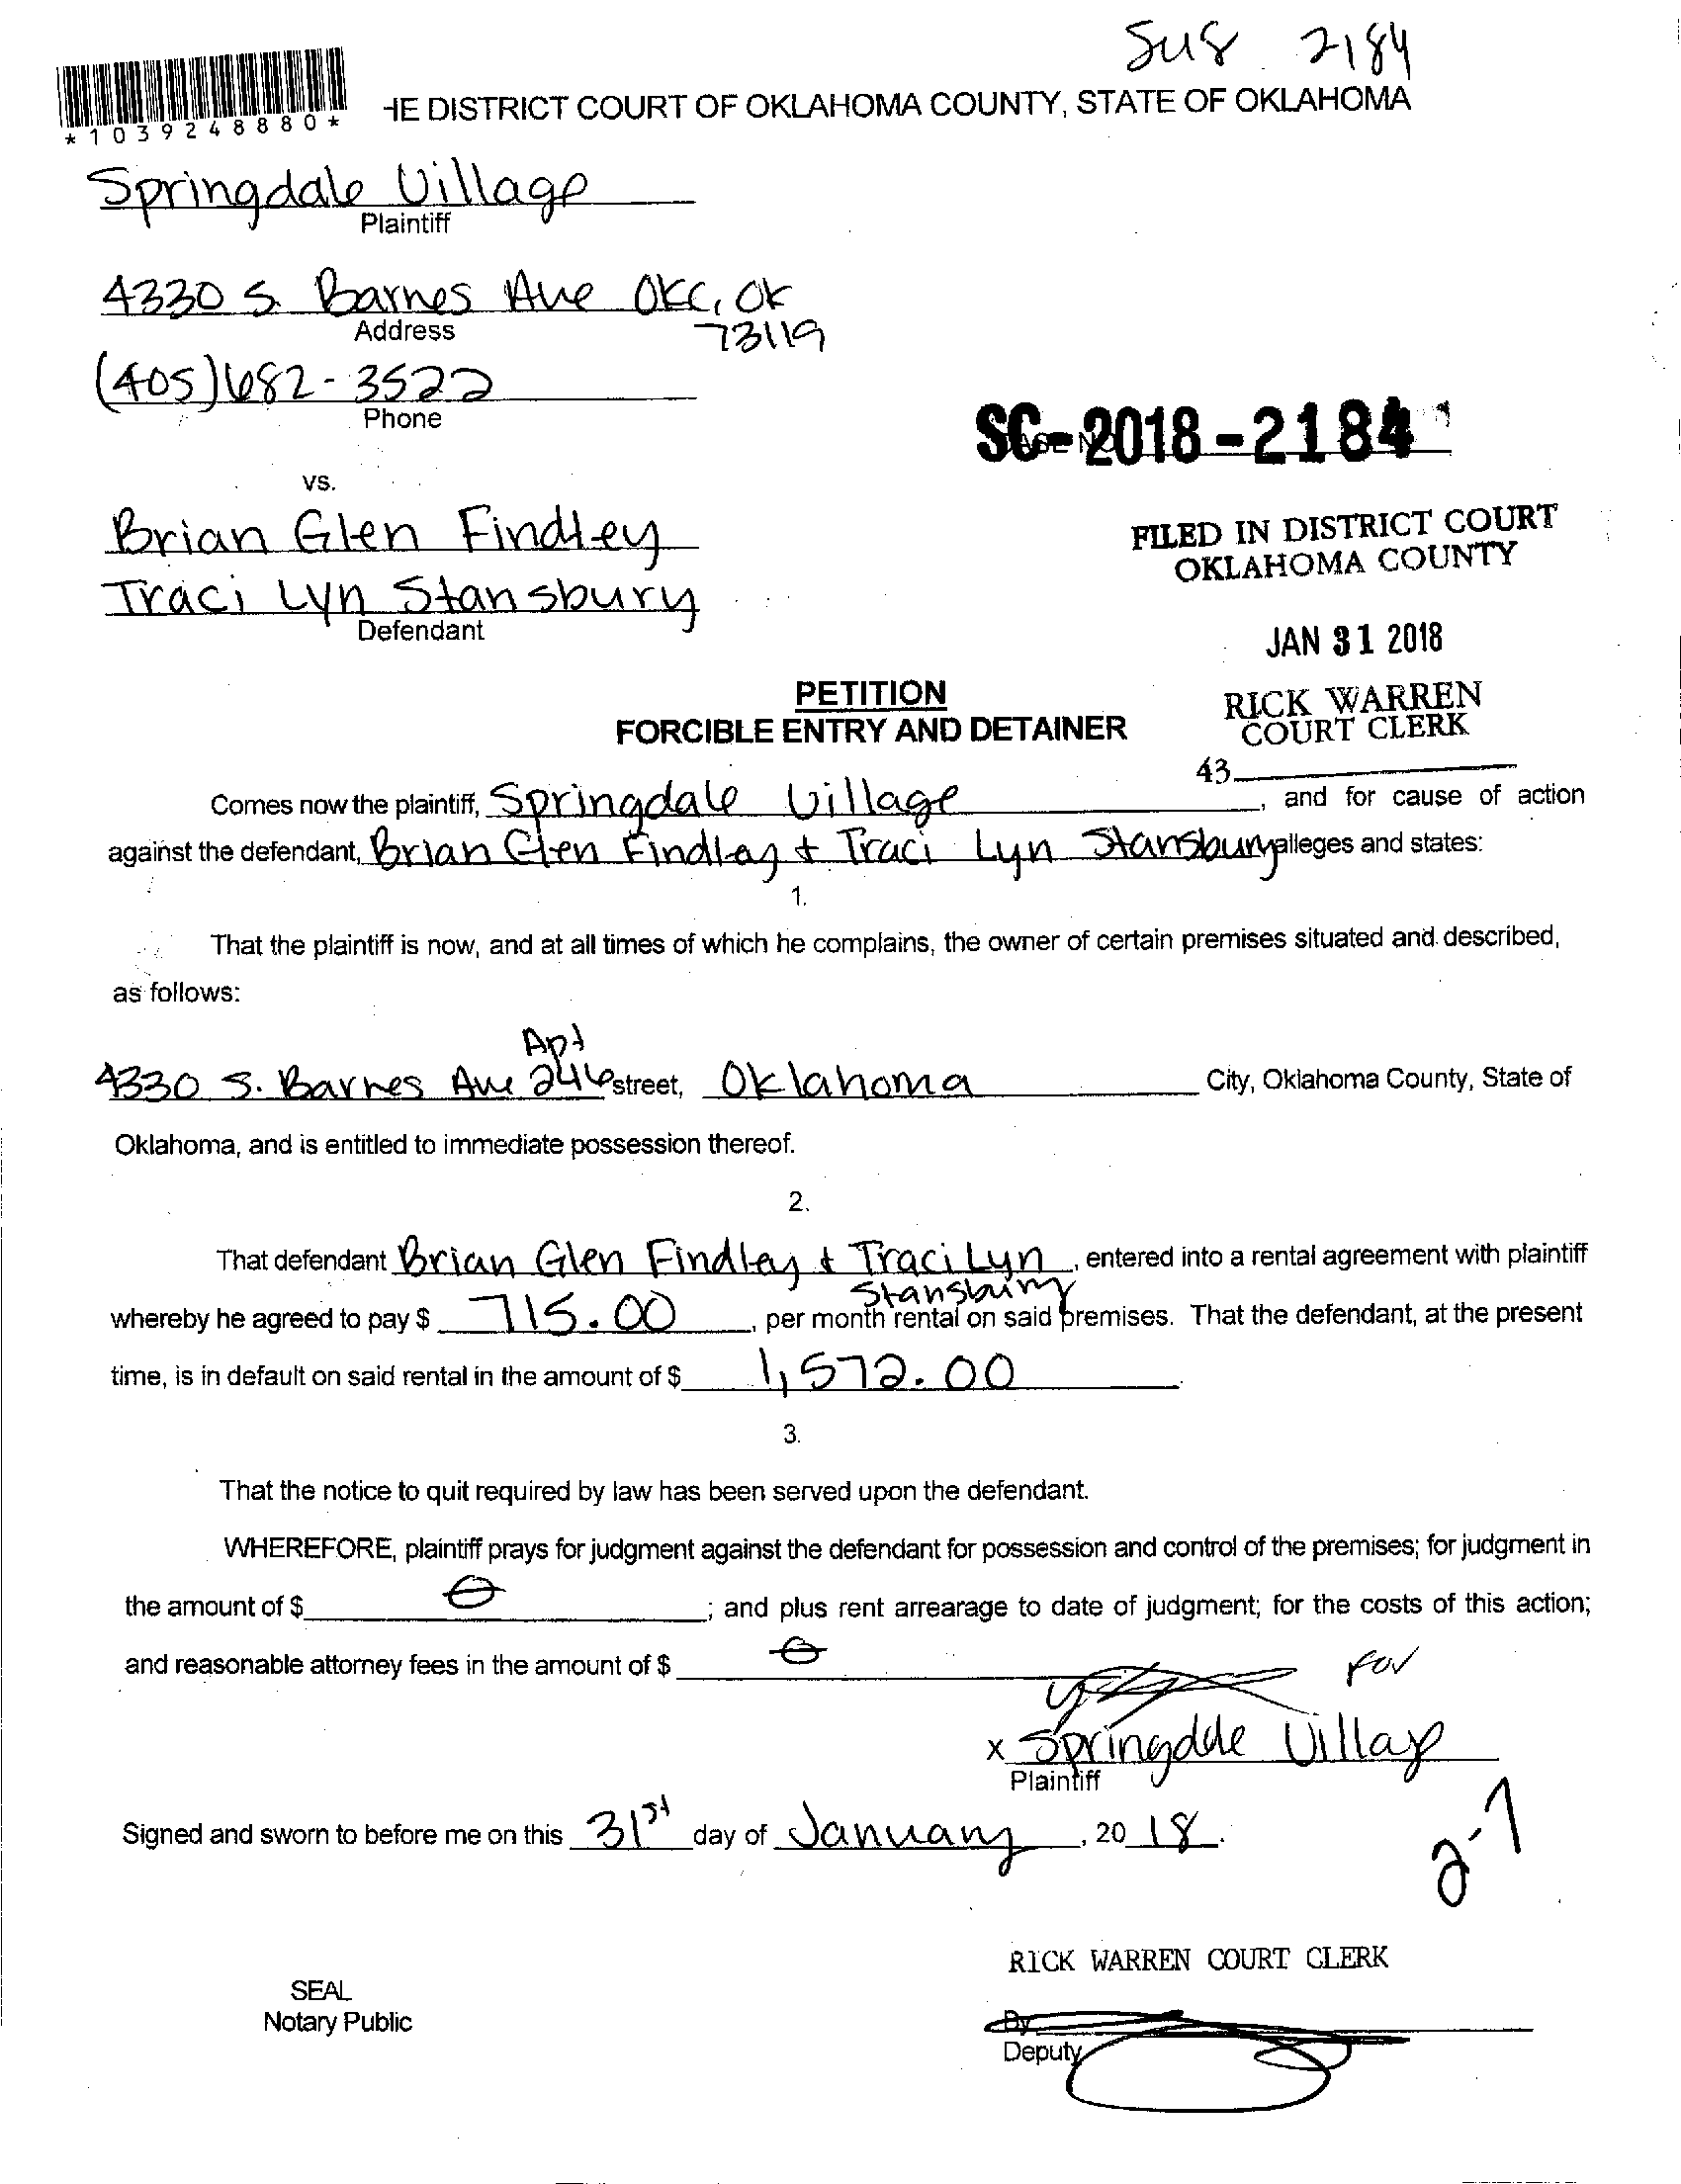 SU8 2184
*1039248880*
HE DISTRICT COURT OF OKLAHOMA COUNTY, STATE OF OKLAHOMA
Springdale Village
Plaintiff
4330 S. Barnes Ave OKC, OK
73119
Address
(405)682-3522
Phone
SC-2018-2184
vs.
Brian Glen Findley
Traci Lyn Stansbury
Defendant
FILED IN DISTRICT COURT
OKLAHOMA COUNTY
JAN 31 2018
RICK WARREN
COURT CLERK
43
PETITION
FORCIBLE ENTRY AND DETAINER
Comes now the plaintiff, Springdale Village, and for cause of action
against the defendant, Brian Glen Findlay + Traci Lyn Stansbury alleges and states:
1.
That the plaintiff is now, and at all times of which he complains, the owner of certain premises situated and described,
as follows:
Apt
4330 S. Barnes Ave 246 street, Oklahoma City, Oklahoma County, State of
Oklahoma, and is entitled to immediate possession thereof.
2.
That defendant Brian Glen Findlay + Traci Lyn, entered into a rental agreement with plaintiff
Stansbury
whereby he agreed to pay $ 715.00, per month rental on said premises. That the defendant, at the present
time, is in default on said rental in the amount of $ 1,572.00
3.
That the notice to quit required by law has been served upon the defendant.
WHEREFORE, plaintiff prays for judgment against the defendant for possession and control of the premises; for judgment in
the amount of $ 0; and plus rent arrearage to date of judgment; for the costs of this action;
and reasonable attorney fees in the amount of $ 0
for
x Springdale Village
Plaintiff
Signed and sworn to before me on this 31st day of January, 2018.
2-7
RICK WARREN COURT CLERK
SEAL
Notary Public
By
Deputy